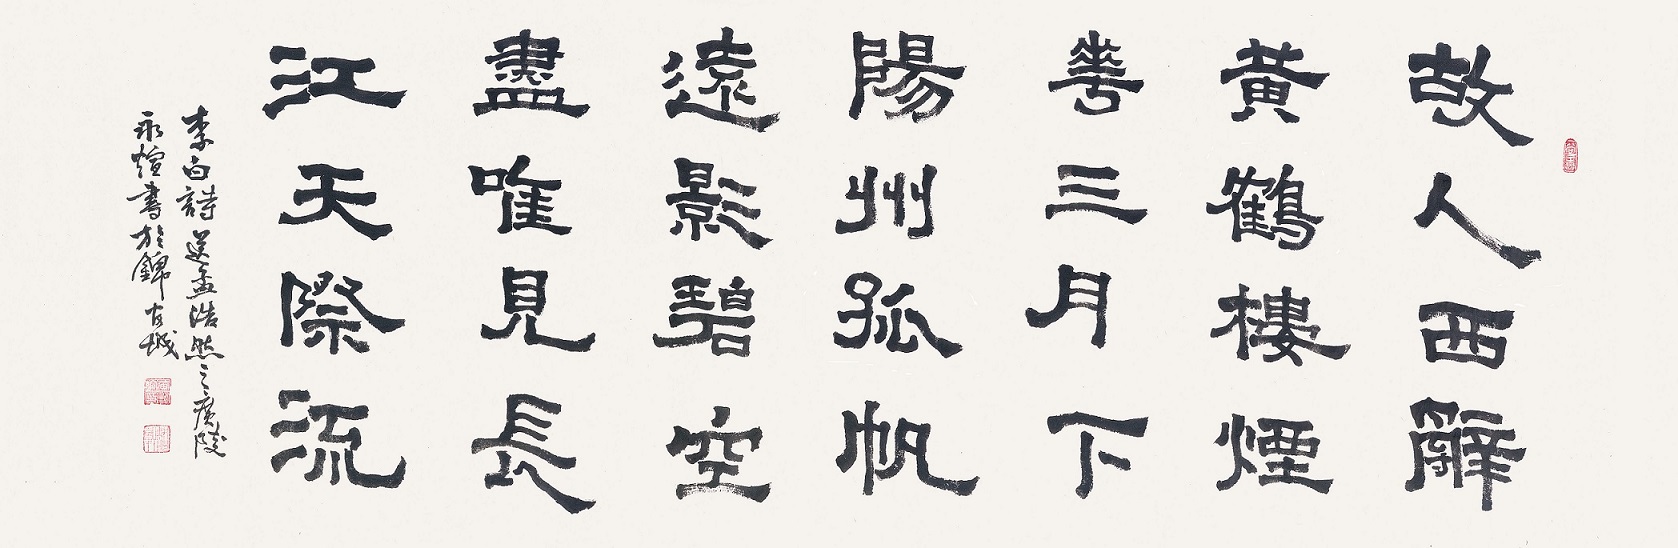 故人西辭
黃鶴樓煙
華三月下
陽州孤帆
遠影碧空
盡唯見長
江天際流
李白詩送孟浩然之廣陵
永煊書於錦官城